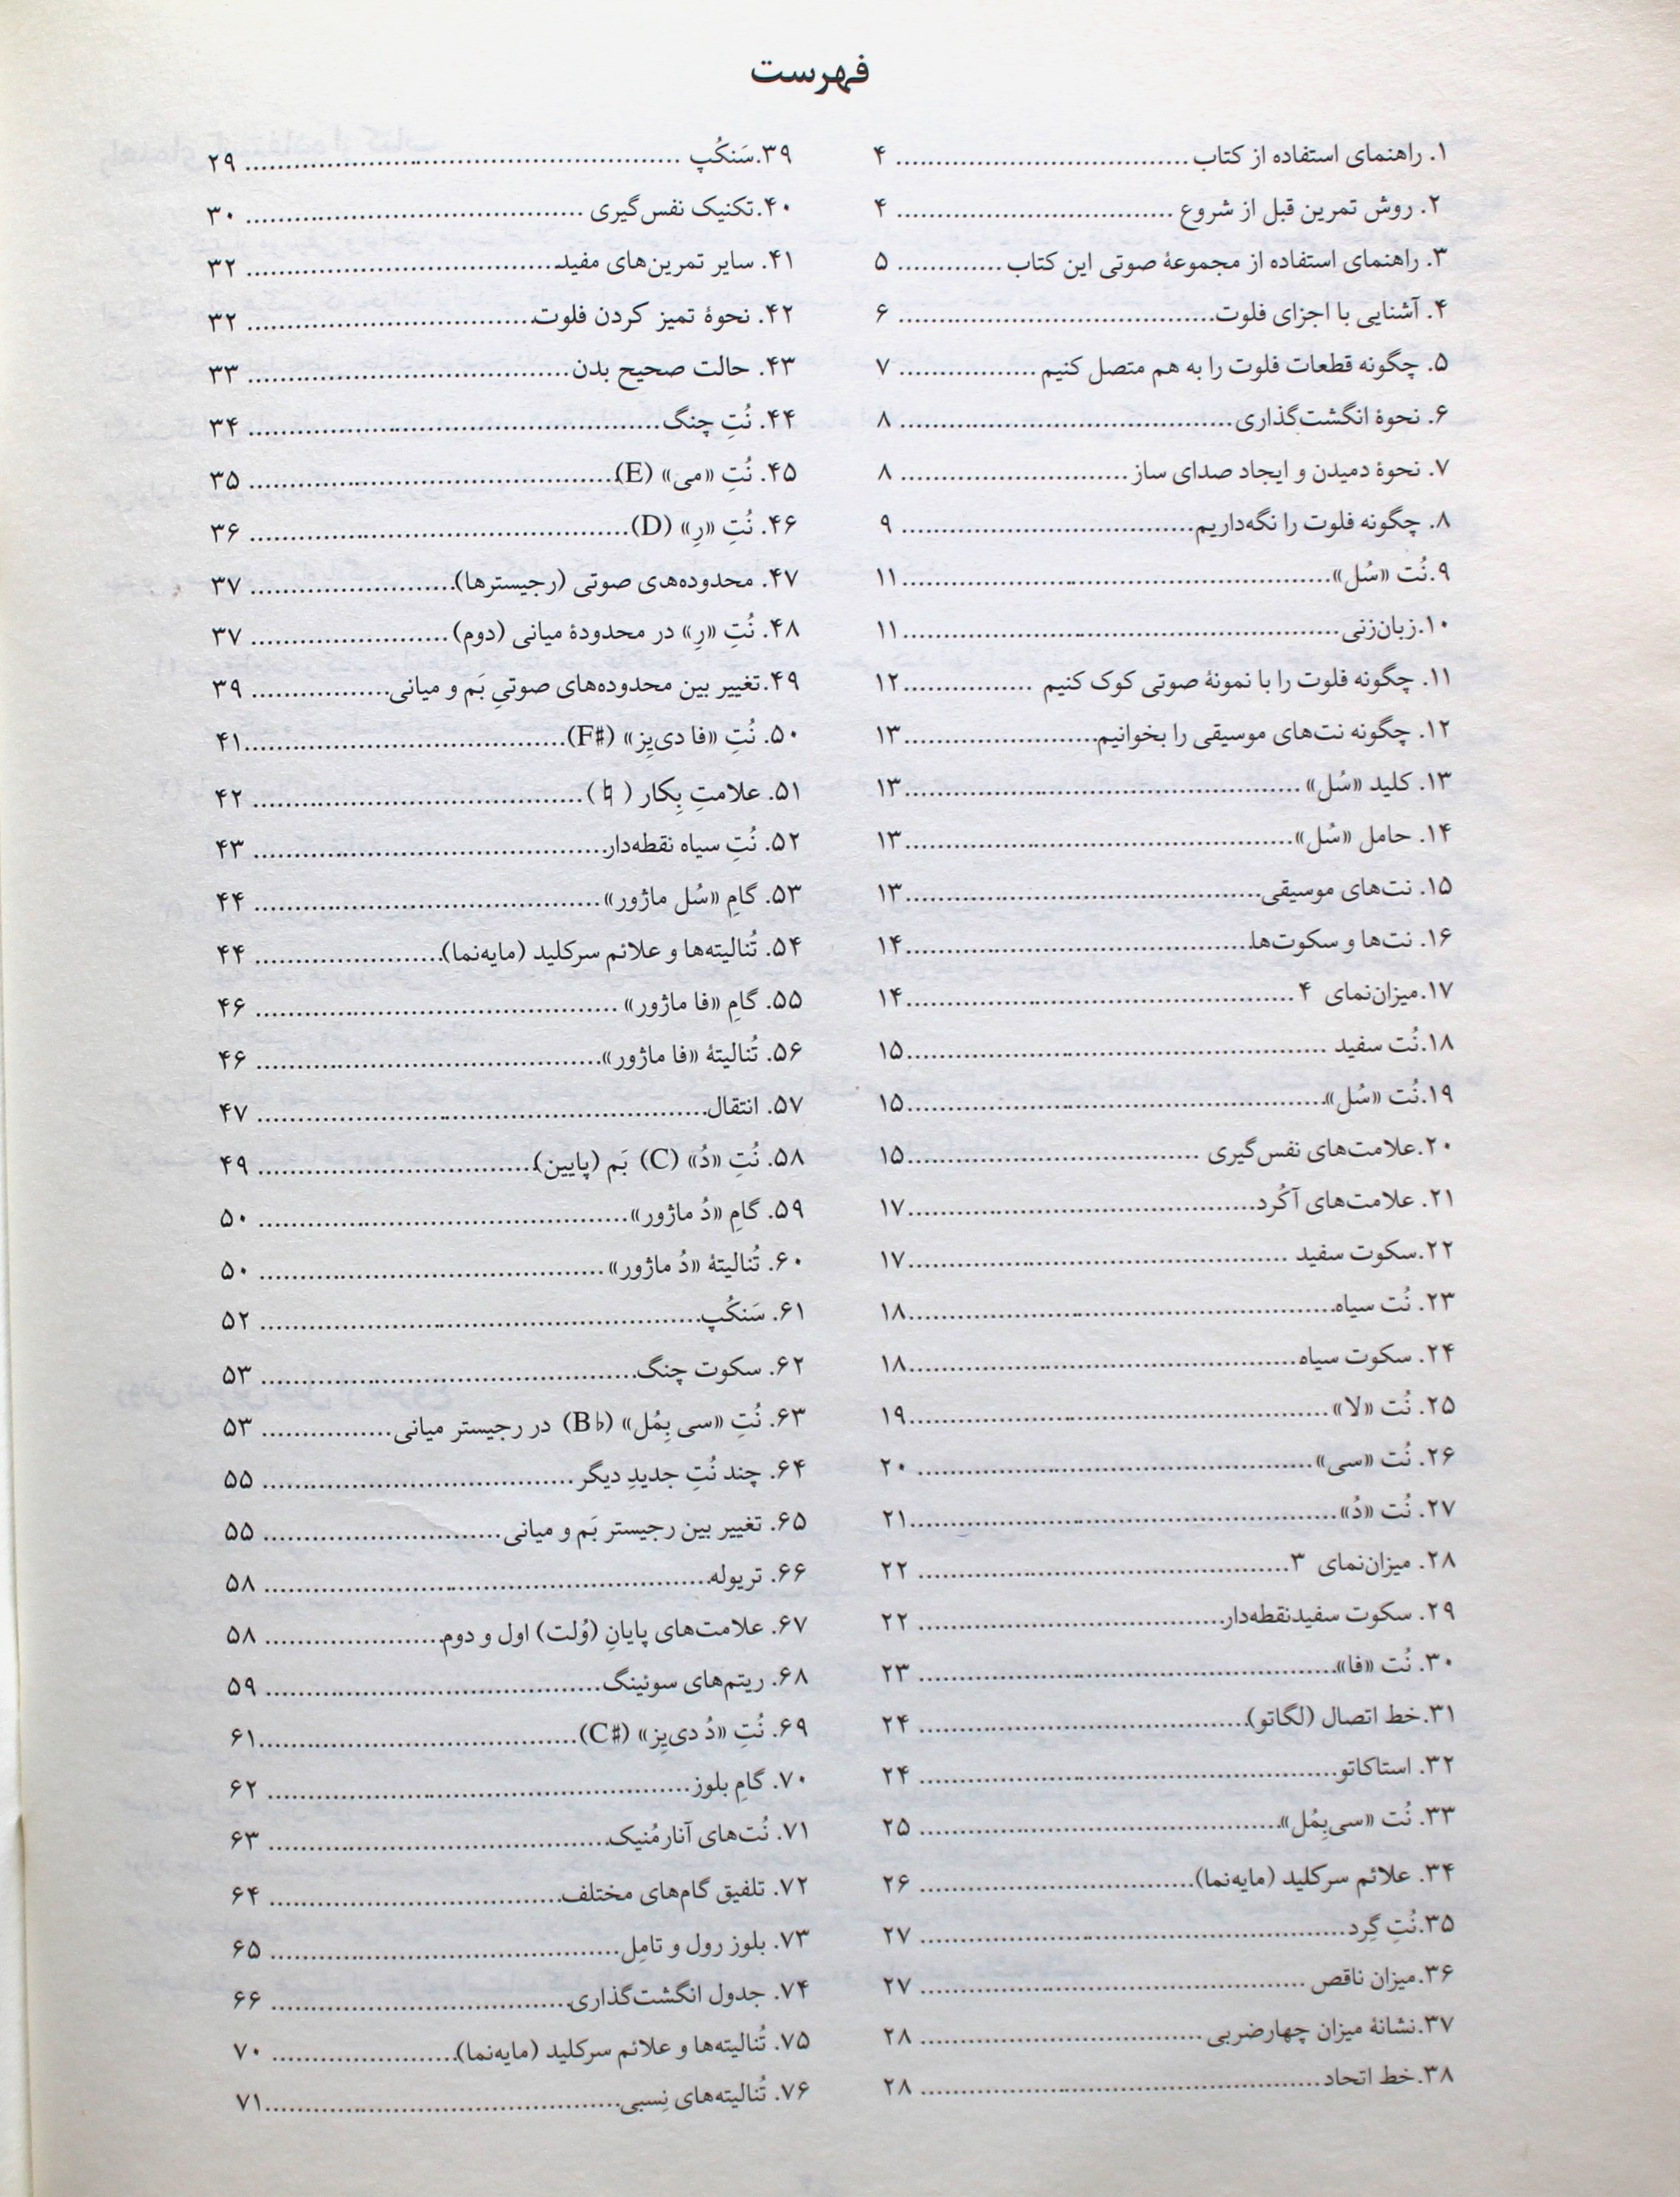 فهرست
۱. راهنمای استفاده از کتاب ........ ۴
۲. روش تمرین قبل از شروع ........ ۴
۳. راهنمای استفاده از مجموعهٔ صوتی این کتاب ........ ۵
۴. آشنایی با اجزای فلوت ........ ۶
۵. چگونه قطعات فلوت را به هم متصل کنیم ........ ۷
۶. نحوهٔ انگشت‌گذاری ........ ۸
۷. نحوهٔ دمیدن و ایجاد صدای ساز ........ ۸
۸. چگونه فلوت را نگه‌داریم ........ ۹
۹.نُت «سُل» ........ ۱۱
۱۰.زبان‌زنی ........ ۱۱
۱۱. چگونه فلوت را با نمونهٔ صوتی کوک کنیم ........ ۱۲
۱۲. چگونه نت‌های موسیقی را بخوانیم ........ ۱۳
۱۳. کلید «سُل» ........ ۱۳
۱۴. حامل «سُل» ........ ۱۳
۱۵. نت‌های موسیقی ........ ۱۳
۱۶. نت‌ها و سکوت‌ها ........ ۱۴
۱۷.میزان‌نمای ۴ ........ ۱۴
۱۸.نُت سفید ........ ۱۵
۱۹.نُت «سُل» ........ ۱۵
۲۰.علامت‌های نفس‌گیری ........ ۱۵
۲۱. علامت‌های آکُرد ........ ۱۷
۲۲.سکوت سفید ........ ۱۷
۲۳. نُت سیاه ........ ۱۸
۲۴. سکوت سیاه ........ ۱۸
۲۵. نُت «لا» ........ ۱۹
۲۶. نُت «سی» ........ ۲۰
۲۷. نُت «دُ» ........ ۲۱
۲۸. میزان‌نمای ۳ ........ ۲۲
۲۹. سکوت سفیدنقطه‌دار ........ ۲۲
۳۰. نُت «فا» ........ ۲۳
۳۱.خط اتصال (لگاتو) ........ ۲۴
۳۲. استاکاتو ........ ۲۴
۳۳. نُت «سی‌بِمُل» ........ ۲۵
۳۴. علائم سرکلید (مایه‌نما) ........ ۲۶
۳۵.نُتِ گِرد ........ ۲۷
۳۶.میزان ناقص ........ ۲۷
۳۷.نشانهٔ میزان چهارضربی ........ ۲۸
۳۸.خط اتحاد ........ ۲۸
۳۹.سَنکُپ ........ ۲۹
۴۰.تکنیک نفس‌گیری ........ ۳۰
۴۱. سایر تمرین‌های مفید ........ ۳۲
۴۲. نحوهٔ تمیز کردن فلوت ........ ۳۲
۴۳. حالت صحیح بدن ........ ۳۳
۴۴. نُتِ چنگ ........ ۳۴
۴۵. نُتِ «می» (E) ........ ۳۵
۴۶. نُتِ «رِ» (D) ........ ۳۶
۴۷. محدوده‌های صوتی (رجیسترها) ........ ۳۷
۴۸. نُتِ «رِ» در محدودهٔ میانی (دوم) ........ ۳۷
۴۹.تغییر بین محدوده‌های صوتیِ بَم و میانی ........ ۳۹
۵۰. نُتِ «فا دی‌یِز» (F♯) ........ ۴۱
۵۱. علامتِ بِکار (♮) ........ ۴۲
۵۲. نُتِ سیاه نقطه‌دار ........ ۴۳
۵۳. گامِ «سُل ماژور» ........ ۴۴
۵۴. تُنالیته‌ها و علائم سرکلید (مایه‌نما) ........ ۴۴
۵۵. گامِ «فا ماژور» ........ ۴۶
۵۶. تُنالیتهٔ «فا ماژور» ........ ۴۶
۵۷. انتقال ........ ۴۷
۵۸. نُتِ «دُ» (C) بَم (پایین) ........ ۴۹
۵۹. گامِ «دُ ماژور» ........ ۵۰
۶۰. تُنالیتهٔ «دُ ماژور» ........ ۵۰
۶۱. سَنکُپ ........ ۵۲
۶۲. سکوت چنگ ........ ۵۳
۶۳. نُتِ «سی بِمُل» (B♭) در رجیستر میانی ........ ۵۳
۶۴. چند نُتِ جدیدِ دیگر ........ ۵۵
۶۵. تغییر بین رجیستر بَم و میانی ........ ۵۵
۶۶. تریوله ........ ۵۸
۶۷. علامت‌های پایانِ (وُلت) اول و دوم ........ ۵۸
۶۸. ریتم‌های سوئینگ ........ ۵۹
۶۹. نُتِ «دُ دی‌یِز» (C♯) ........ ۶۱
۷۰. گامِ بلوز ........ ۶۲
۷۱. نُت‌های آنارمُنیک ........ ۶۳
۷۲. تلفیق گام‌های مختلف ........ ۶۴
۷۳. بلوز رول و تامِل ........ ۶۵
۷۴. جدول انگشت‌گذاری ........ ۶۶
۷۵. تُنالیته‌ها و علائم سرکلید (مایه‌نما) ........ ۷۰
۷۶. تُنالیته‌های نِسبی ........ ۷۱